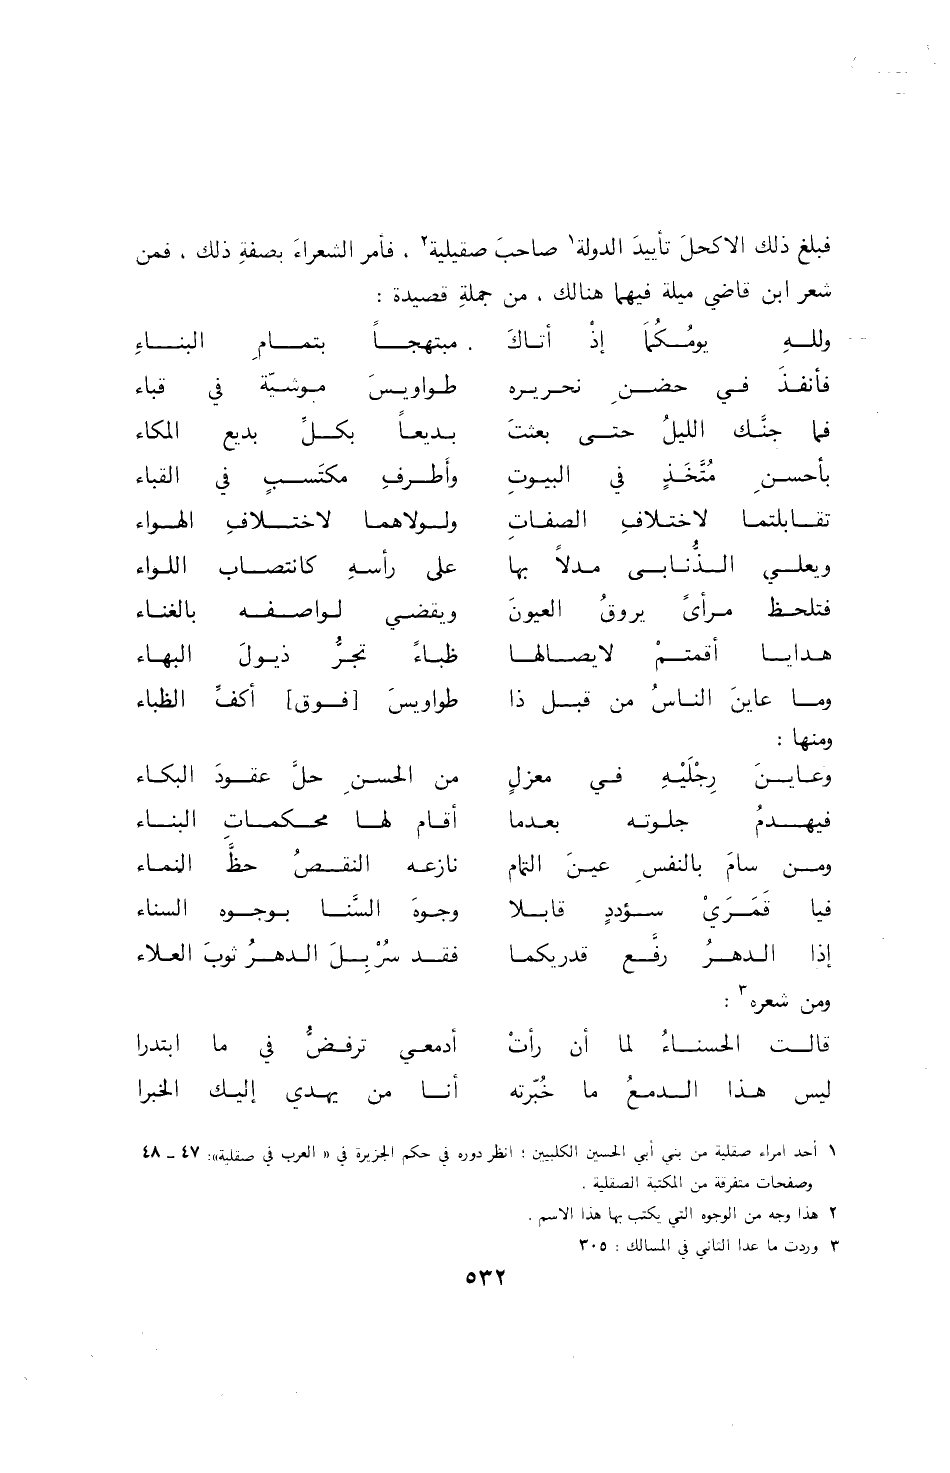 فبلغ ذلك الاكحلَ تأييدَ الدولة١ صاحبَ صقيلية٢ ، فأمر الشعراءَ بصفةِ ذلك ، فمن
شعر ابن قاضي ميلة فيها هنالك ، من جملةِ قصيدة :
وللـهِ يومُـكُمَا إذْ أتـاكَ مبتهجـاً بتمـامِ البنـاءِ
فأنفـذَ فـي حضـنِ نحـريرِه طـواويسَ مـوشـيّةً في قباء
فما جنَّـك الليلُ حتـى بعثتَ بـديعـاً بكـلِّ بديعِ المكاء
بأحسـنِ مُتَّخـذٍ في البيـوتِ وأطـرفِ مكتسـبٍ في القباء
تقـابلتمـا لاختـلافِ الصفـاتِ ولـولاهمـا لاختـلافِ الهـواء
ويعلـي الـذُّنـابـى مـدلاً بها على رأسـهِ كانتصـابِ اللـواء
فتلحـظ مـرأىً يروقُ العيونَ ويقضـي لـواصـفـه بالغنـاء
هـدايـا أقمتـمْ لايصـالهـا ظبـاءً تجـرُّ ذيـولَ البهـاء
ومـا عاينَ النـاسُ من قبـل ذا طواويسَ [فـوق] أكفِّ الظباء
ومنها :
وعـايـنَ رِجْلَيْـهِ فـي معزلٍ من الحسـنِ حلَّ عقـودَ البكـاء
فيهـدمُ جلـوتـه بعـدمـا أقـام لهـا محـكمـات البنـاء
ومـن سـامَ بالنفسِ عيـنَ التمام نازعـه النقـصُ حظَّ النمـاء
فيا قَمَـرَيْ سـؤددٍ قـابـلا وجـوهَ السَّنـا بـوجـوه السناء
إذا الـدهـرُ رفَّـع قدريكمـا فقـد سُرْبِـلَ الـدهـرُ ثوبَ العلاء
ومن شعره٣ :
قالـت الحسنـاءُ لما أن رأتْ أدمعـي ترفـضُّ في ما ابتدرا
ليس هـذا الـدمـعُ ما خُبّرته أنـا من يهـدي إليـك الخبرا
١ أحد امراء صقلية من بني أبي الحسين الكلبيين ؛ انظر دوره في حكم الجزيرة في « العرب في صقلية»: ٤٧ ـ ٤٨
وصفحات متفرقة من المكتبة الصقلية .
٢ هذا وجه من الوجوه التي يكتب بها هذا الاسم .
٣ وردت ما عدا الثاني في المسالك : ٣٠٥
٥٣٢